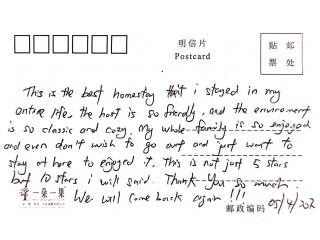 明信片
Postcard
贴 邮
票 处
This is the best homestay that i stayed in my
entire life, the host is so friendly, and the enviroment
is so classic and cozy. My whole family is so enjoyed
and even don't wish to go out and just want to
stay at home to enjoyed it. This is not just 5 stars
but 10 stars i will said. Thank you so much.
We will come back again !!!
一朵一果
邮政编码
05/4/202